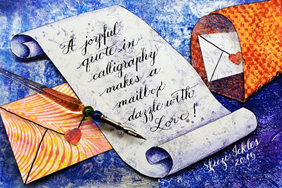 A joyful
quote in
calligraphy
makes a
mailbox
dazzle with
Love!
2019